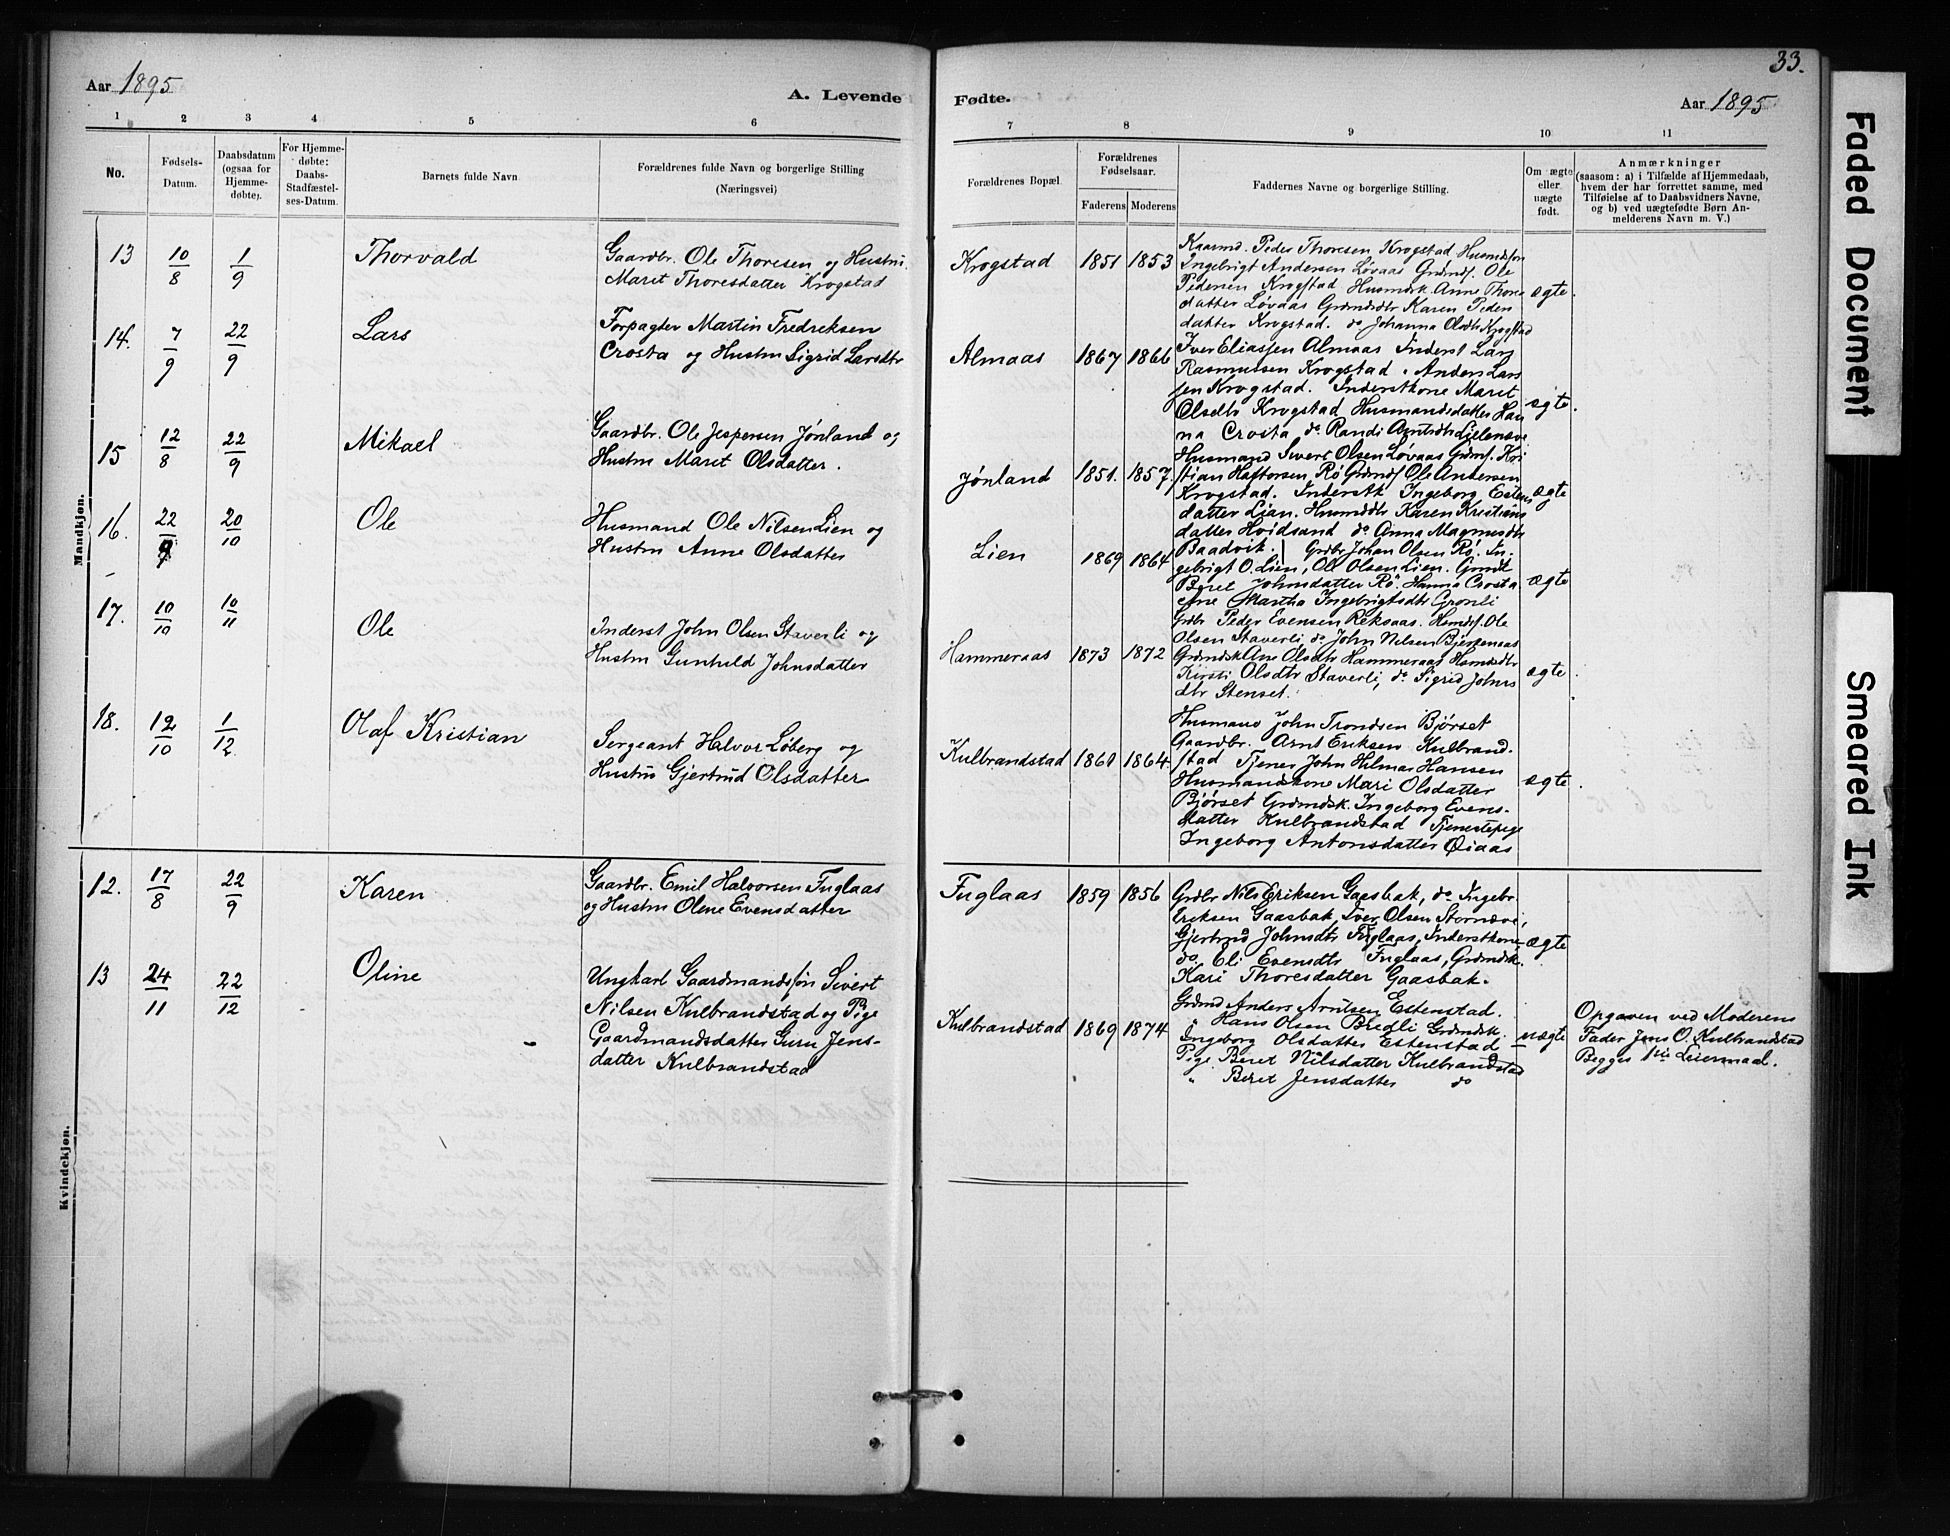 33.
Aar 1895
A. Levende Fødte.
Aar 1895
1 2 3 4 5 6 7 8 9 10 11
No.
Fødsels-
Datum.
Daabsdatum
(ogsaa for
Hjemme-
døbte).
For Hjemme-
døbte:
Daabs-
Stadfæstel-
ses-Datum.
Barnets fulde Navn
Forældrenes fulde Navn og borgerlige Stilling
(Næringsvei)
Forældrenes Bopæl
Forældrenes
Fødselsaar.
Faderens Moderens
Faddernes Navne og borgerlige Stilling.
Om ægte
eller
uægte
født.
Anmærkninger
(saasom: a) i Tilfælde af Hjemmedaab,
hvem der har forrettet samme, med
Tilføielse af to Daabsvidners Navne,
og b) ved uægtefødte Børn An-
melderens Navn m. V.)
Mandkjøn.
13 10/8 1/9 Thorvald
Gaardbr. Ole Thoresen og Hustru
Maret Thoresdatter Krogstad
Krogstad 1851 1853
Gaarmd. Peder Thoresen Krogstad Husmdsøn
Ingebrigt Andersen Løvaas Grdmds. Ole
Pedersen Krogstad Husmdsk. Anne Thores
datter Løvaas Grdmdsdtr Karen Peders
datter Krogstad. do Johanna Olsdtr Krogstad
ægte.
14. 7/9 22/9 Lars
Forpagter Martin Fredriksen
Crosta og Hustru Sigrid Larsdtr
Almaas 1867 1866
Iver Eliassen Almaas Inderst Lars
Rasmussen Krogstad. Anders Lars
sen Krogstad. Inderstkone Maret
Olsdtr Krogstad Husmandsdatter Han
na Crosta do Randi Arntsdtr Lillenæve
ægte.
15 12/8 22/9 Mikael
Gaardbr. Ole Jespersen Jønland og
Hustru Maret Olsdatter.
Jønland 1851. 1857.
Husmand Sivert Olsen Løvaas Grdms. Kri
stian Haftorsen Rø Grdmds Ole Andersen
Krogstad. Inderstk Ingeborg Estens
datter Lian. Husmdsdtr Karen Kristians
datter Hvidsand do Anna Magnusdtr
Baadvik.
ægte
16. 22/9 20/10 Ole
Husmand Ole Nilsen Lien og
Hustru Anne Olsdatter
Lien 1869 1864
Grdbr Johan Olsen Rø. In-
gebrigt O. Lien, Ole Olsen Lien. Grmdk
Beret Johnsdatter Rø. Hanna Crosta
Martha Ingebrigtsdtr Gronli
ægte
17. 10/10 10/11 Ole
Inderst John Olsen Staverli og
Hustru Gunhild Johnsdatter
Hammeraas 1873 1872
Grdbr Peder Evensen Reksaas. Husmdsf. Ole
Olsen Staverli do John Nilsen Bjerkenaas
Grdmdsk Ane Olsdtr Hammeraas Husmdsdtr
Kirsti Olsdtr Staverli, do Sigrid Johns
dtr Stenset.
ægte.
18. 12/10 1/12 Olaf Kristian
Sergeant Halvor Løberg og
Hustru Gjertrud Olsdatter
Kulbrandstad 1861 1864.
Husmand John Trondsen Bjørset
Gaardbr. Arnt Eriksen Kulbrand-
stad Tjener John Hilmar Hansen
Husmandskone Mari Olsdatter
Bjørset Grdmdsk. Ingeborg Evens-
datter Kulbrandstad Tjenestepige
Ingeborg Antonsdatter Øiaas
ægte.
Kvindekjøn.
12. 17/8 22/9 Karen
Gaardbr. Emil Halvorsen Fuglaas
og Hustru Olene Evensdatter
Fuglaas 1859 1856
Grdbr Nils Eriksen Gaasbak, do Ingebr.
Eriksen Gaasbak, Iver Olsen Stornæve,
Gjertrud Johnsdtr Fuglaas, Inderstkone
do Eli Evensdtr Fuglaas, Grdmdsk.
Kari Thoresdatter Gaasbak.
ægte
13 24/11 22/12 Oline
Ungkarl Gaardmandssøn Sivert
Nilsen Kulbrandstad og Pige
Gaardmandsdatter Guru Jens-
datter Kulbrandstad
Kulbrandstad 1869 1874
Grdmd Anders Arntsen Estenstad.
" Hans Olsen Bredli Grdmdsk.
Ingeborg Olsdatter Estenstad
Pige Beret Nilsdatter Kulbrandstad
" Beret Jensdatter do
uægte
Opgaven ved Moderens
Fader Jens O. Kulbrandstad
Begges 1ste Leiermaal.
Faded Document
Smeared Ink